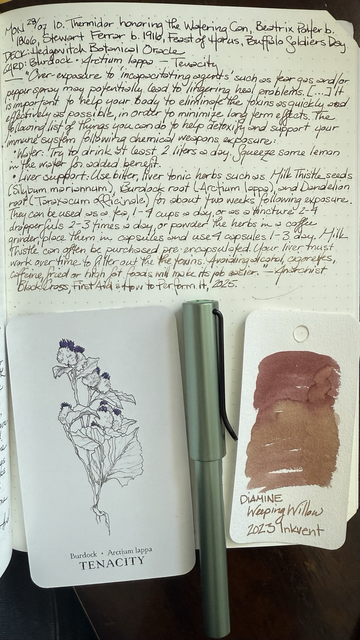 MON 28/07 10. Thermidor honoring the Watering Can, Beatrix Potter b.
1866, Stewart Farrar b. 1916, Feast of Horus, Buffalo Soldiers Day
DECK: Hedgewitch Botanical Oracle
CARD: Burdock • Arctium lappa — Tenacity
"Over-exposure to 'incapacitating agents' such as tear gas and/or
pepper spray may potentially lead to lingering health problems. [...] It
is important to help your body to eliminate the toxins as quickly and
effectively as possible, in order to minimize long term effects. The
following list of things you can do to help detoxify and support your
immune system following chemical weapons exposure:
• Water: Try to drink at least 2 liters a day. Squeeze some lemon
in the water for added benefit.
• Liver support: Use bitter, liver tonic herbs such as Milk Thistle seeds
(Silybum marianum), Burdock root (Arctium lappa), and Dandelion
root (Taraxacum officinale) for about two weeks following exposure.
They can be used as a tea, 1-4 cups a day, or as a tincture 2-4
dropperfuls 2-3 times a day, or powder the herbs in a coffee
grinder, place them in capsules and use 4 capsules 1-3 day. Milk
Thistle can often be purchased pre-encapsulated. Your liver must
work over time to filter out the toxins. Avoiding alcohol, cigarettes,
caffeine, fried or high fat foods will make its job easier." ~ Anarchist
Black Cross, First Aid & How to Perform it, 2025.
Burdock • Arctium lappa
TENACITY
DIAMINE
Weeping Willow
2023 Inkvent